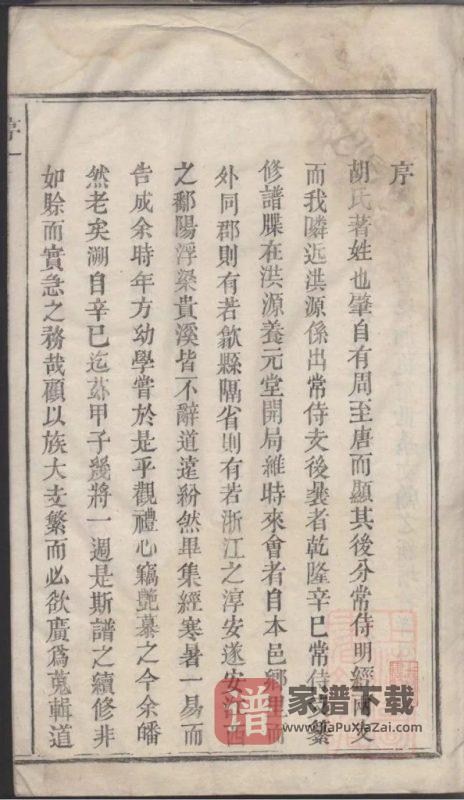 序
胡氏著姓也肇自有周至唐而顯其後分常侍明經兩支
而我隣近洪源係出常侍支後曩者乾隆辛巳常侍纂
修譜牒在洪源養元堂開局維時來會者自本邑鄉里而
外同郡則有若歙縣隔省則有若浙江之淳安遂安江西
之鄱陽浮梁貴溪皆不辭道遠紛然畢集經寒暑一易而
告成余時年方幼學嘗於是乎觀禮心竊艷慕之今余皤
然老矣溯自辛巳迄茲甲子幾將一週是斯譜之續修非
如賒而實急之務哉顧以族大支繁而必欲廣爲蒐輯道
序 一
譜 家谱下载
www.jiaPuXiaZai.com